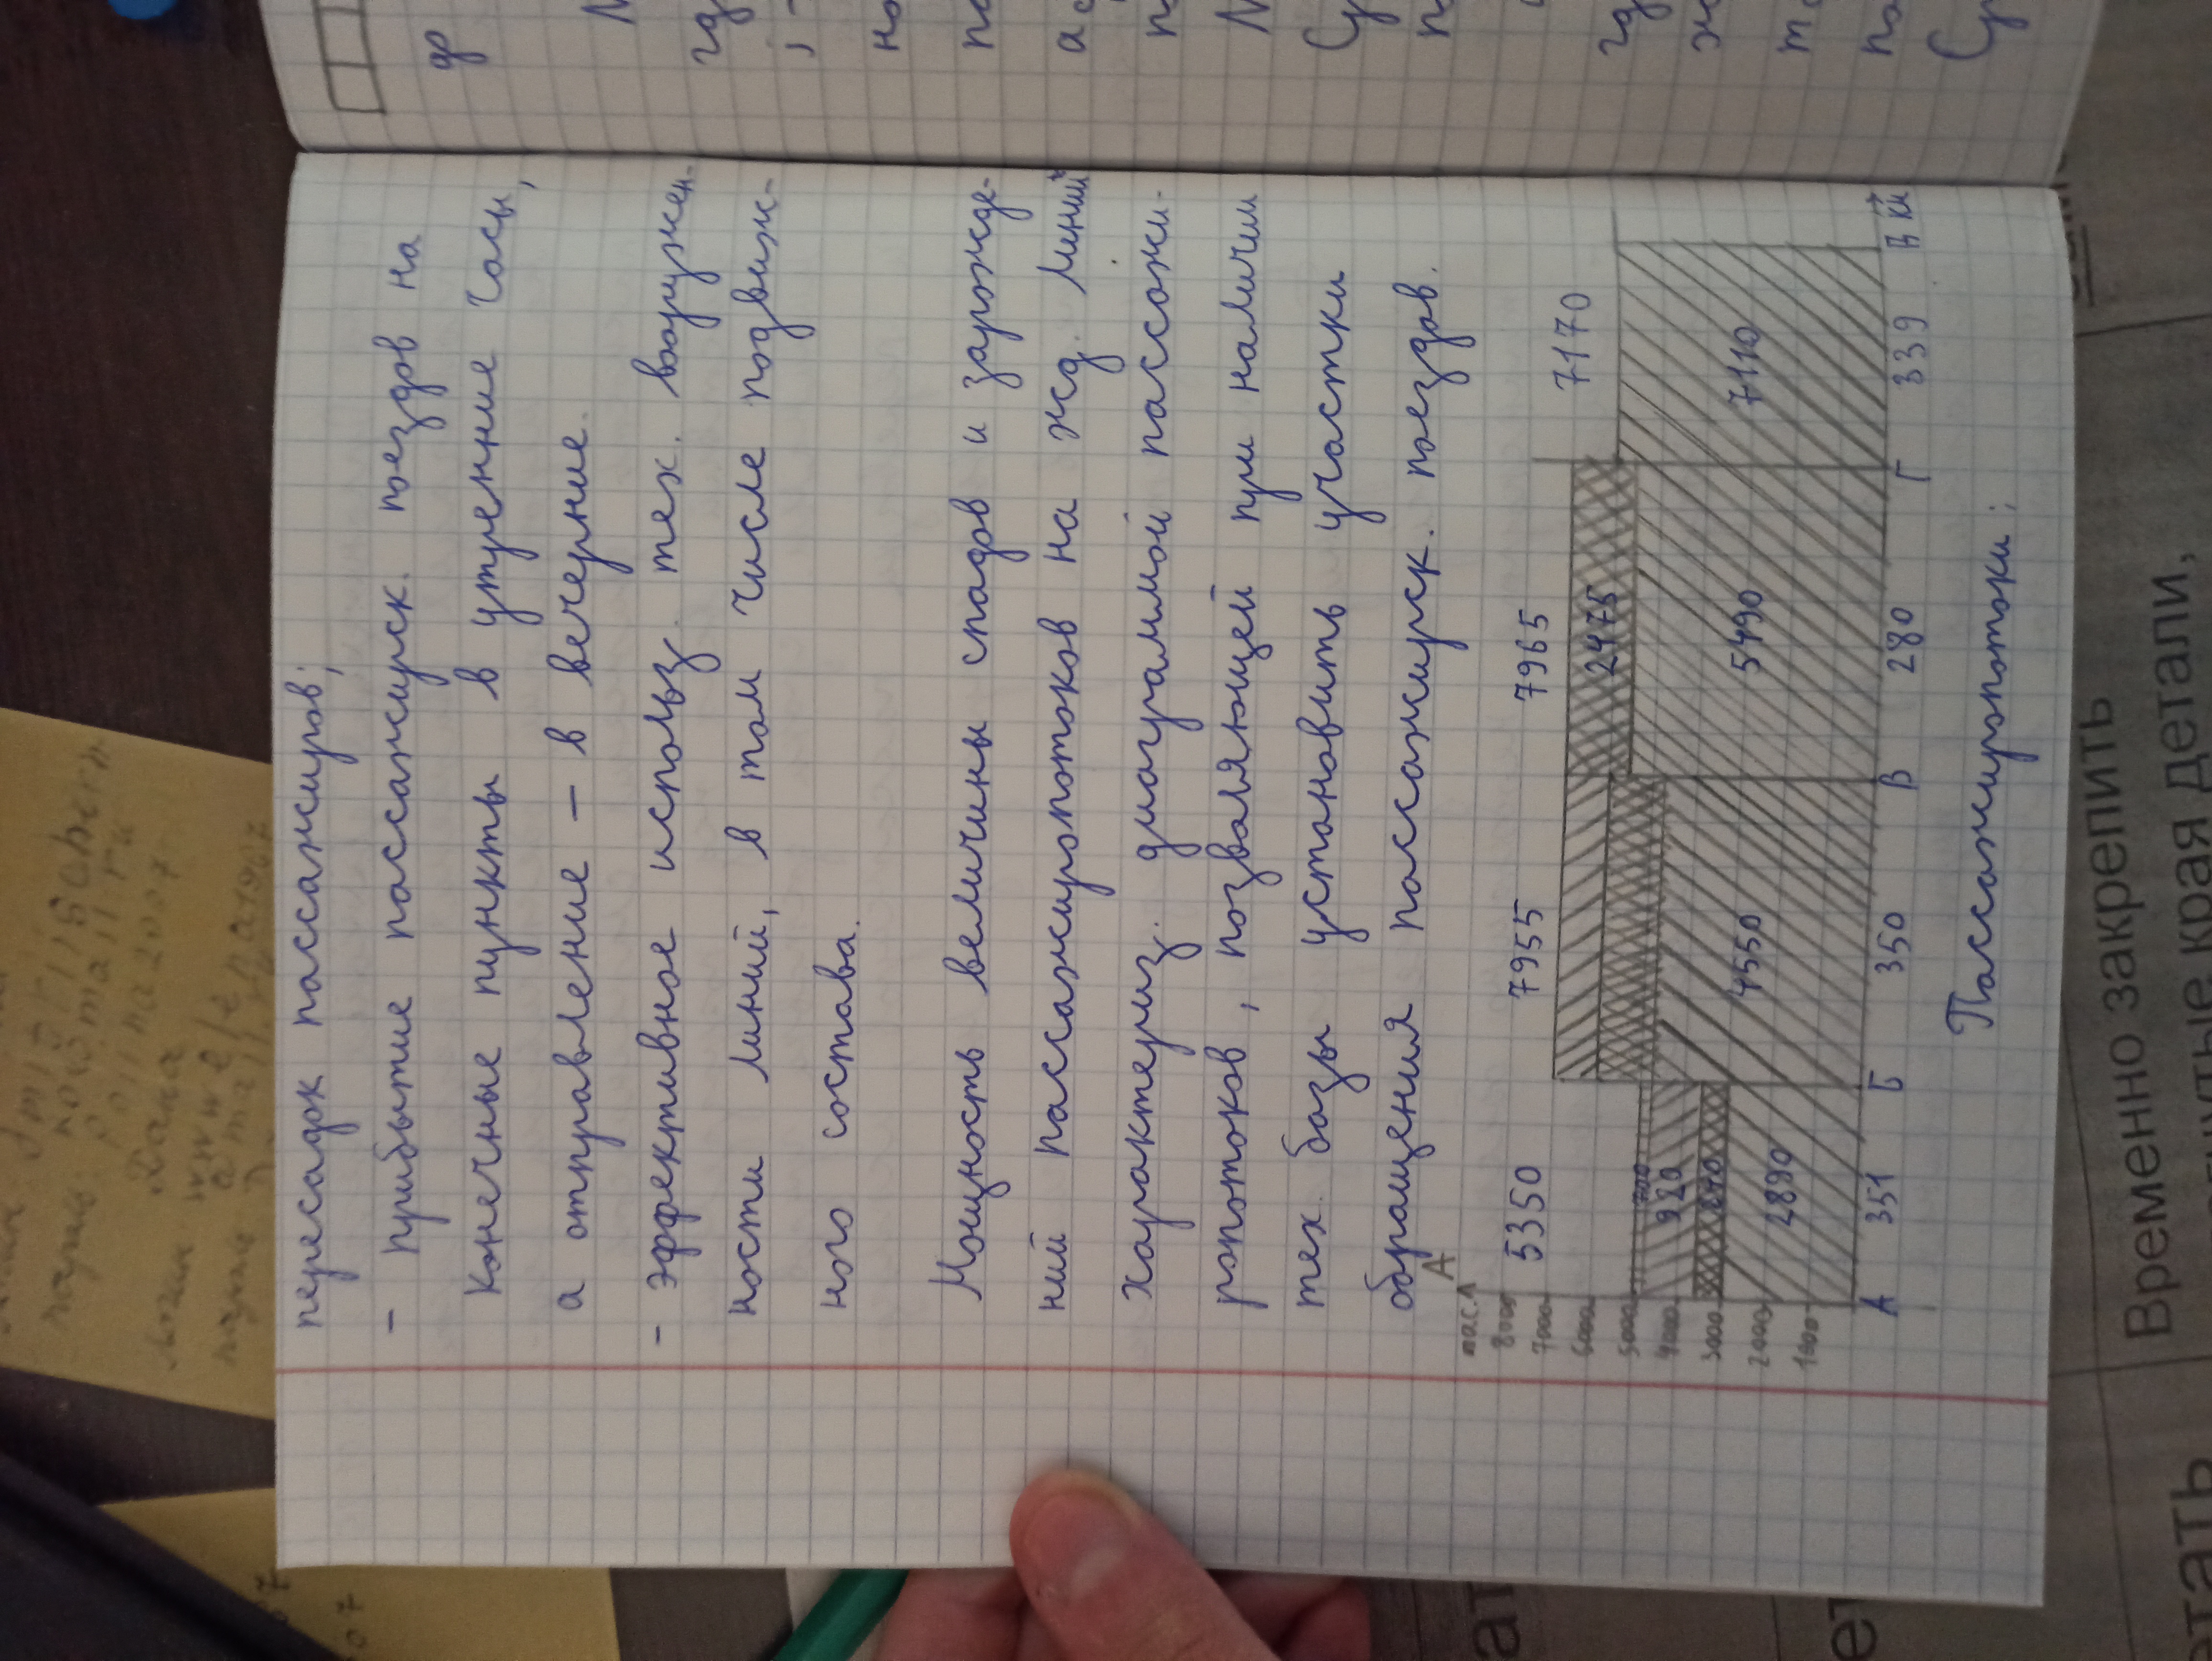 пересадок пассажиров;
- прибытие пассажирск. поездов на
конечные пункты в утренние часы,
а отправление - в вечерние.
- эффективное использ. тех. вооружен-
ности линий, в том числе подвиж-
ного состава.
Мощность величины спадов и зарожде-
ний пассажиропотоков на жд. линий
характериз. диаграммой пассажи-
ропотоков, позваляющей при наличии
тех. базы установить участки
обращения пассажирск. поездов.
А
пас.
8000
7000
6000
5000
4000
3000
2000
1000
5350 7955 7965 7170
700
920
840
2890
4550
2475
5490
7110
А 351 Б 350 В 280 Г 339 В км
Пассажиропотоки:
Временно закрепить
края детали,